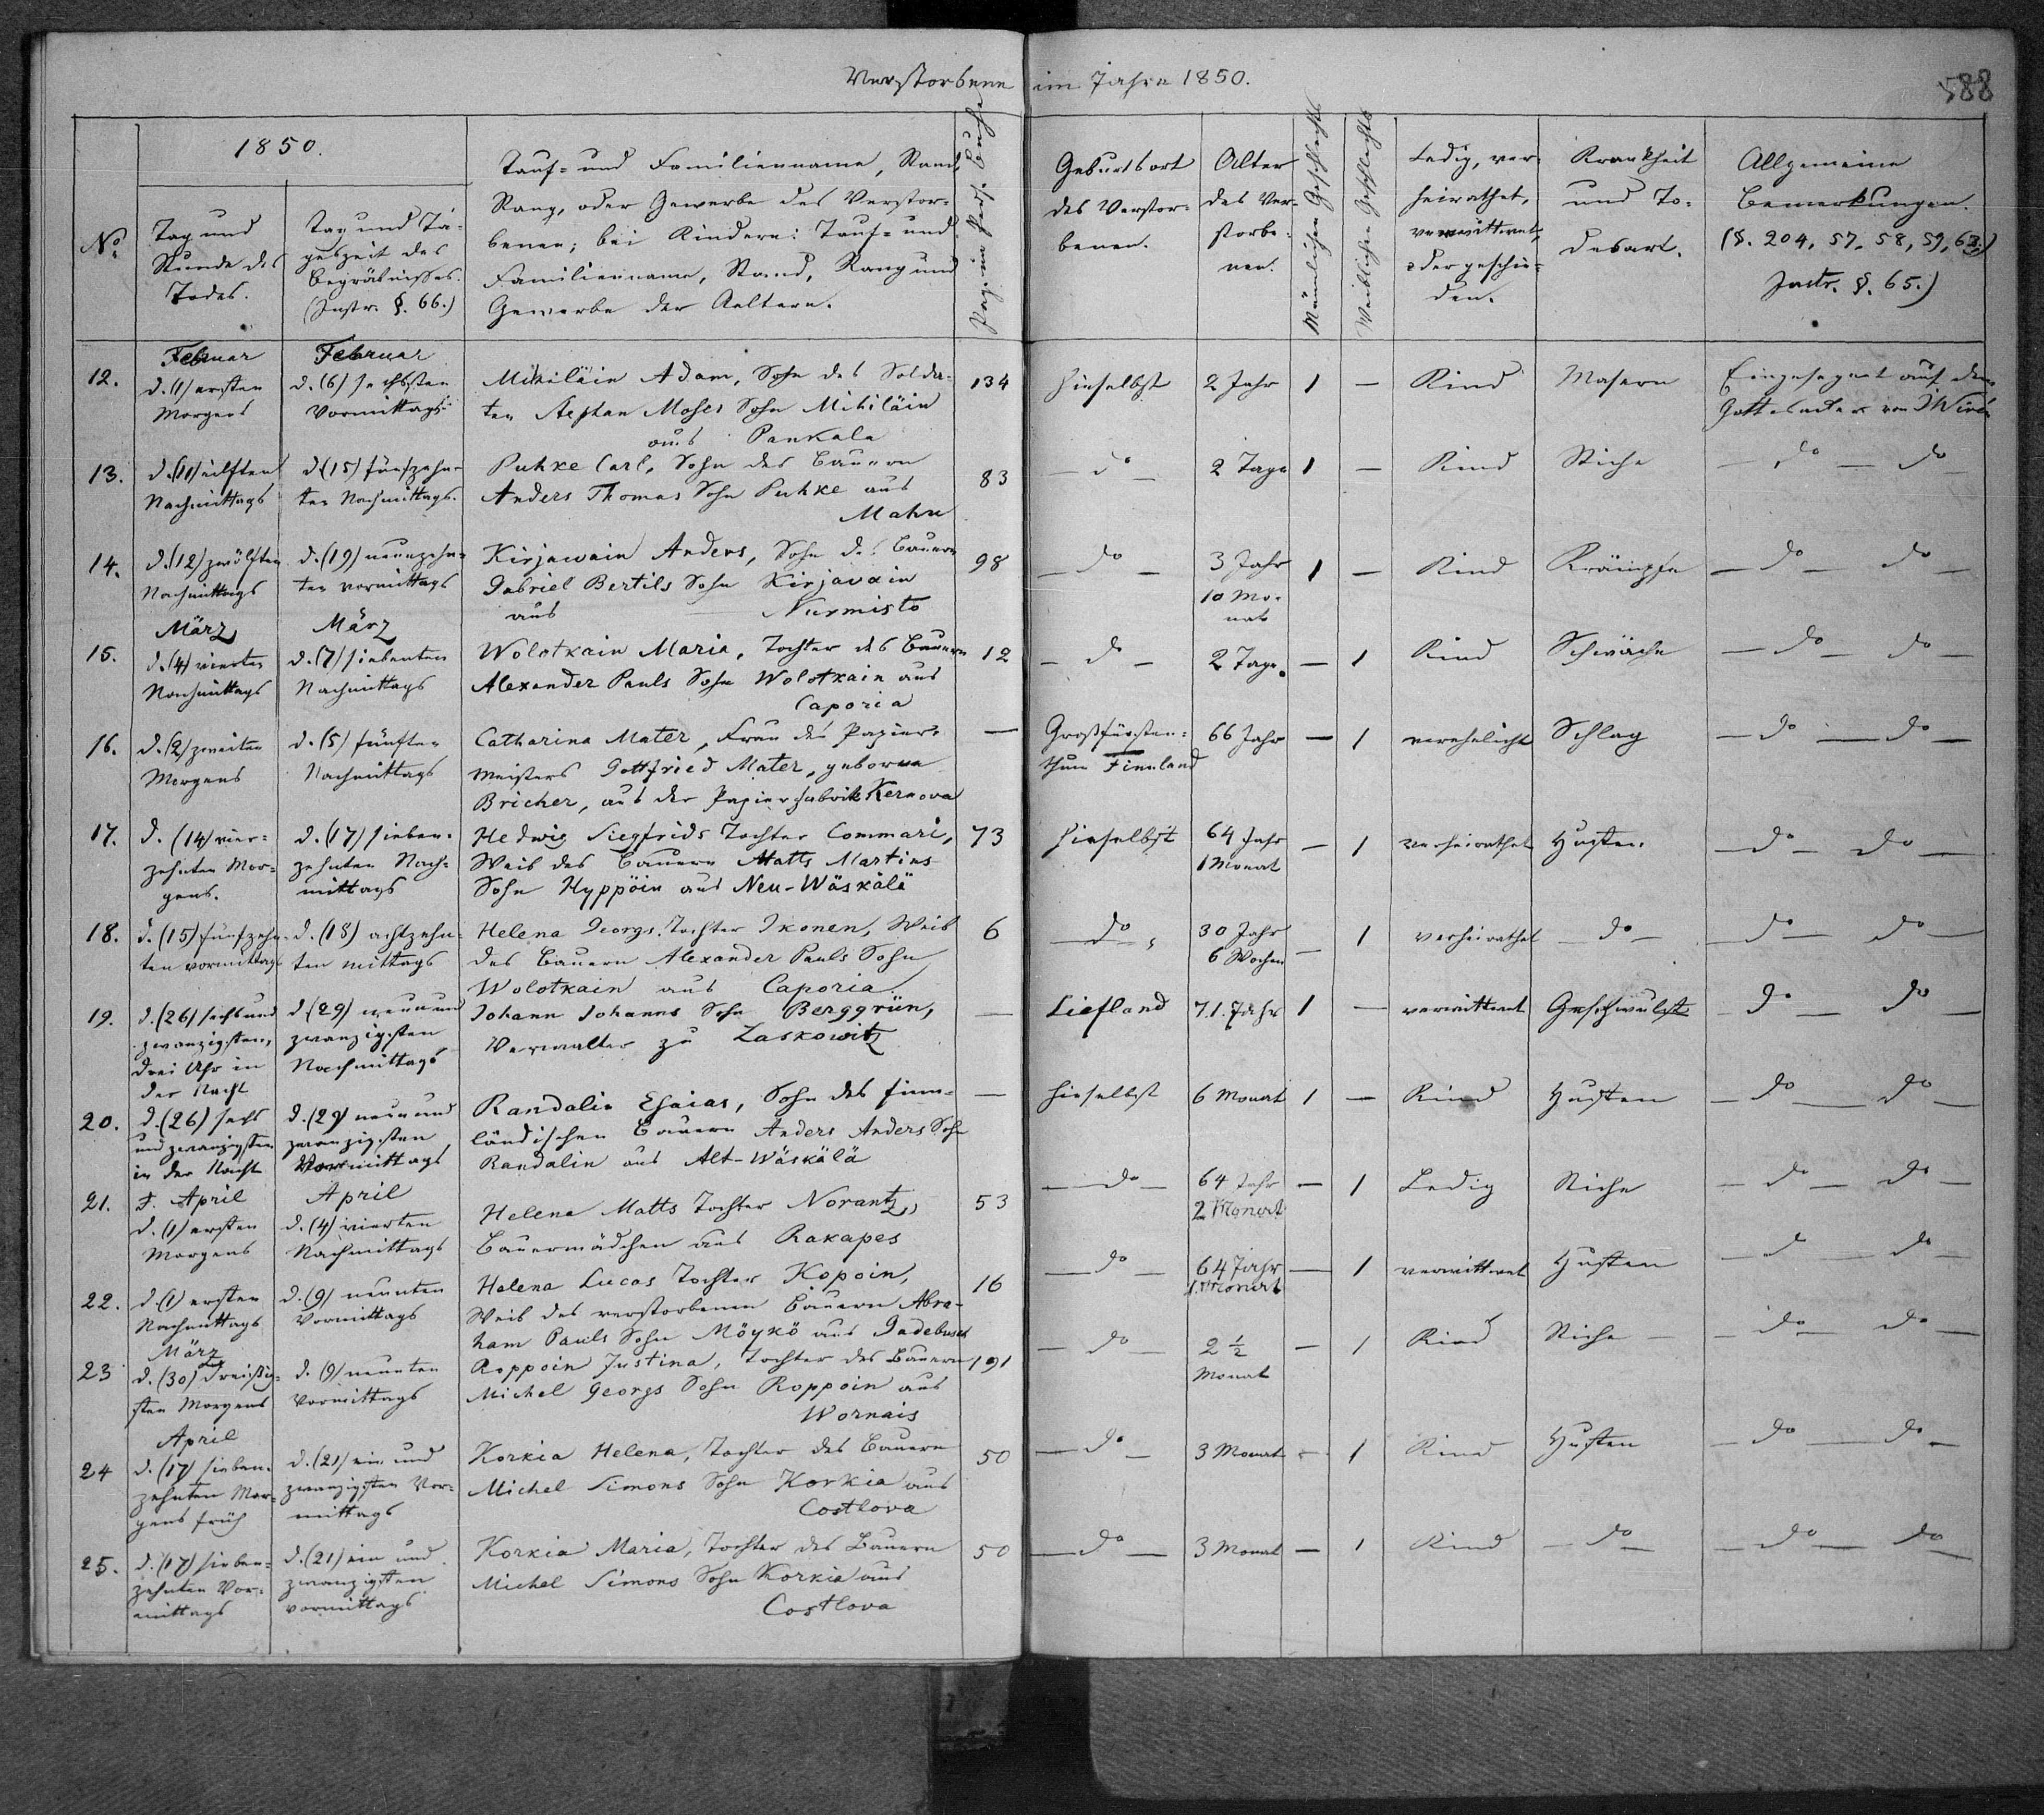 Verstorbene im Jahre 1850.
588
1850.
No
Tag und
Stunde des
Todes.
Tag und Ta-
geszeit des
Begräbnisses.
(Instr. §. 66.)
Tauf- und Familienname, Stand,
Rang, oder Gewerbe des Verstor-
benen; bei Kindern: Tauf- und
Familienname, Stand, Rang und
Gewerbe der Aeltern.
Pag. im Pers. Buche
Geburtsort
des Verstor-
benen.
Alter
des Ver-
storbe-
nen.
Männlichen Geschlechts
Weiblichen Geschlechts
Ledig, ver-
heirathet,
verwittwet,
oder geschie-
den.
Krankheit
und To-
desart.
Allgemeine
Bemerkungen.
(§. 204, 57, 58, 59, 63.)
Instr. §. 65.)
12.
Februar
d. (1) ersten
Morgens
Februar
d. (6) sechsten
Vormittags
Mihiläin Adam, Sohn des Solda-
ten Stephan Moses Sohn Mihiläin
aus Pankala
134
hieselbst
2 Jahr
1
—
Kind
Masern
Eingesegnet auf dem
Gottesacker von
13.
d. (11) eilften
Nachmittags
d. (15) fünfzehn-
ten Nachmittags.
Puhke Carl, Sohn des Bauern
Anders Thomas Sohn Puhke aus
Mahu
83
— do —
2 Tage
1
—
Kind
Stiche
— do — do
14.
d. (12) zwölften
Nachmittags
d. (19) neunzehn-
ten Vormittags
Kirjawain Anders, Sohn des Bauern
Gabriel Bertils Sohn Kirjavain
aus Nurmisto
98
— do —
3 Jahr
10 Mo-
nat
1
—
Kind
Krämpfe
— do — do —
15.
März
d. (4) vierten
Nachmittags
März
d. (7) siebenten
Nachmittags
Wolotkain Maria, Tochter des Bauern
Alexander Pauls Sohn Wolotkain aus
Caporia
12
— do —
2 Tage.
—
1
Kind
Schwäche
— do — do —
16.
d. (2) zweiten
Morgens
d. (5) fünften
Nachmittags
Catharina Mater, Frau des Papier-
meisters Gottfried Mater, geborne
Bricher, aus der Papierfabrik Kernova
—
Großfürsten-
thum Finnland
66 Jahr
—
1
verehelicht
Schlag
— do — do —
17.
d. (14) vier-
zehnten Mor-
gens.
d. (17) sieben-
zehnten Nach-
mittags
Hedwig Siegfrids Tochter Commari,
Weib des Bauern Matts Martins
Sohn Hyppöin aus Neu-Wäskälä
73
hieselbst
64 Jahr
1 Monat
—
1
verheirathet
Husten
— do — do —
18.
d. (15) fünfzehn-
ten Vormittags
d. (18) achtzehn-
ten Mittags
Helena Georgs Tochter Ikonen, Weib
des Bauern Alexander Pauls Sohn
Wolotkain aus Caporia.
6
— do —
30 Jahr
6 Wochen
—
1
verheirathet
— do —
— do — do —
19.
d. (26) sechs und
zwanzigsten,
drei Uhr in
der Nacht
d. (29) neun und
zwanzigsten
Nachmittags
Johann Johanns Sohn Berggrün,
Verwalter zu Laskowitz
—
Liefland
71. Jahr
1
—
verwittwet
Geschwulst
— do — do —
20.
d. (26) sechs
und zwanzigsten
in der Nacht
d. (29) neun und
zwanzigsten
Vormittags
Randalin Esaias, Sohn des finn-
ländischen Bauern Anders Anders Sohn
Randalin aus Alt-Wäskälä
—
hieselbst
6 Monat
1
—
Kind
Husten
— do — do —
21.
April
d. (1) ersten
Morgens
April
d. (4) vierten
Nachmittags
Helena Matts Tochter Norantz,
Bauermädchen aus Rakapes
53
— do —
64 Jahr
2 Monat
—
1
Ledig
Stiche
— do — do —
22.
d. (1) ersten
Nachmittags
d. (9) neunten
Vormittags
Helena Lucas Tochter Kopoin,
Weib des verstorbenen Bauern Abra-
ham Pauls Sohn Möykö aus Gadebusch
16
— do —
64 Jahr
1 Monat
—
1
verwittwet
Husten
— do — do —
23
März
d. (30) dreißig-
sten Morgens
d. (9) neunten
Vormittags
Roppoin Justina, Tochter des Bauern
Michel Georgs Sohn Roppoin aus
Wornais
191
— do —
2 1/2
Monat
—
1
Kind
Stiche
— do — do —
24
April
d. (17) sieben-
zehnten Mor-
gens früh
d. (21) ein und
zwanzigsten Vor-
mittags
Korkia Helena, Tochter des Bauern
Michel Simons Sohn Korkia aus
Costlova
50
— do —
3 Monat
—
1
Kind
Husten
— do — do —
25.
d. (17) sieben-
zehnten Vor-
mittags
d. (21) ein und
zwanzigsten
Vormittags
Korkia Maria, Tochter des Bauern
Michel Simons Sohn Korkia aus
Costlova
50
— do —
3 Monat
—
1
Kind
— do —
— do — do —